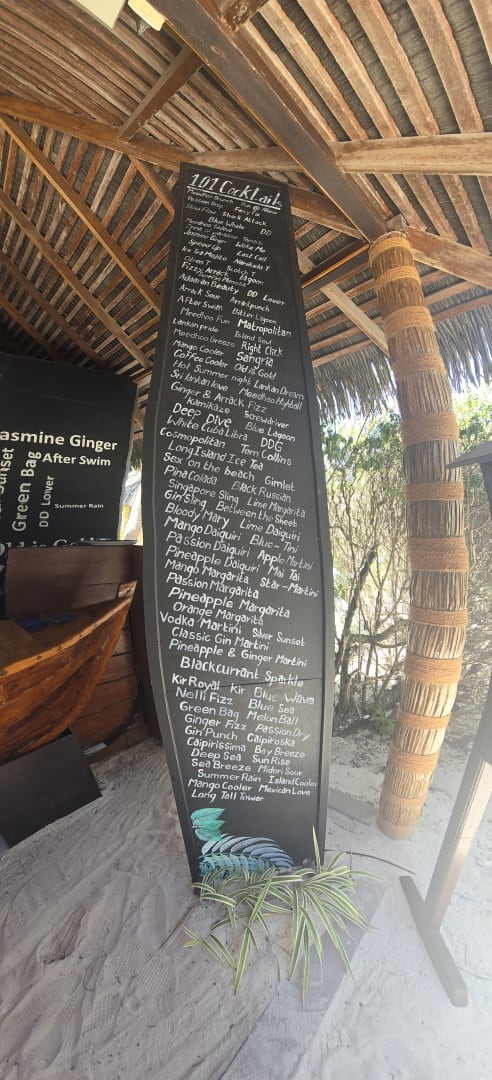 101 Cocktails
Meedhoo Brunch Fun @ Rhine
Passion Drip Foxy Fox
Shark Attack DD
Blue Whale
Meedhoo Sunrise
Wake Me
Jasmine Ginger Last Call
Speed Up
Ice Sea Malibu
Citron T Scotch T
Fizzy Arrack Lagoon
Adaaran Beauty DD Lover
Arrack Sour Arrackpunch
After Swim Bitter Lagoon
Meedhoo Fun Matropolitan
Lankan pride Island Soul
Meedhoo Breeze Right Click
Mango Cooler Sangria
Coffee Cooler Old is Gold
Hot Summer night Lankan Dream
Sri lankan love Meedhoo Highball
Ginger & Arrack Fizz
kamikaze Screwdriver
Deep Dive Blue Lagoon
White Cuba Libra DDG
Cosmopolitan Tom Collins
Long Island Ice Tea
Sex on the beach Gimlet
Pina Colada Black Russian
Singapore Sling Lime Margarita
Gin sling Between the Sheet
Bloody Mary Lime Daiquiri
Mango Daiquiri Blue-Tini
Passion Daiquiri Apple Martini
Pineapple Daiquiri Mai Tai
Mango Margarita Star-Martini
Passion Margarita
Pineapple Margarita
Orange Margarita
Vodka Martini Silver Sunset
Classic Gin Martini
Pineapple & Ginger Martini
Blackcurrant Sparkle
Kir Royal Kir Blue Wave
Nelli Fizz Blue Sea
Green Bag Melon Ball
Ginger Fizz Passion Dry
Gin' Punch Caipiroska
Caipirissima Bay Breeze
Deep Sea Sun Rise
Sea Breeze Midori Sour
Summer Rain Island Cooler
Mango Cooler Mexican Love
Long Tall Tower
asmine Ginger
After Swim
Sunset
Green Bag
DD Lover
Summer Rain